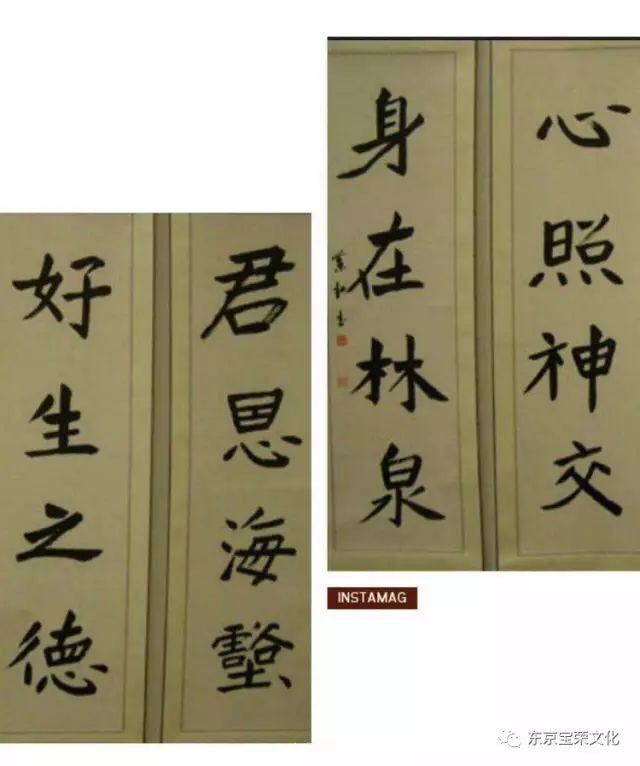 心照神交
身在林泉
君恩海壑
好生之德
INSTAMAG
东京宝荣文化